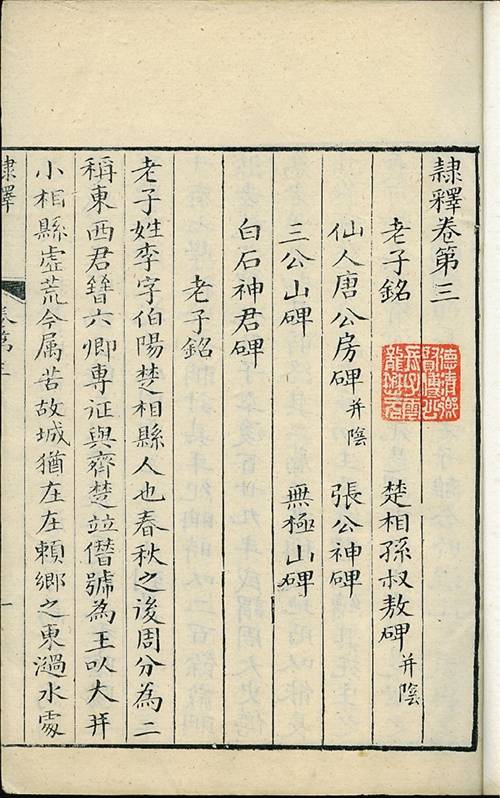 隸釋卷第三
老子銘　楚相孫叔敖碑并陰
仙人唐公房碑并陰　張公神碑
三公山碑　無極山碑
白石神君碑
老子銘
老子姓李字伯陽楚相縣人也春秋之後周分為二
稱東西君晉六卿専征與齊楚並僭號為王以大并
小相縣虛荒今属苦故城猶在在頼鄉之東濄水處
隸釋　卷第三　一